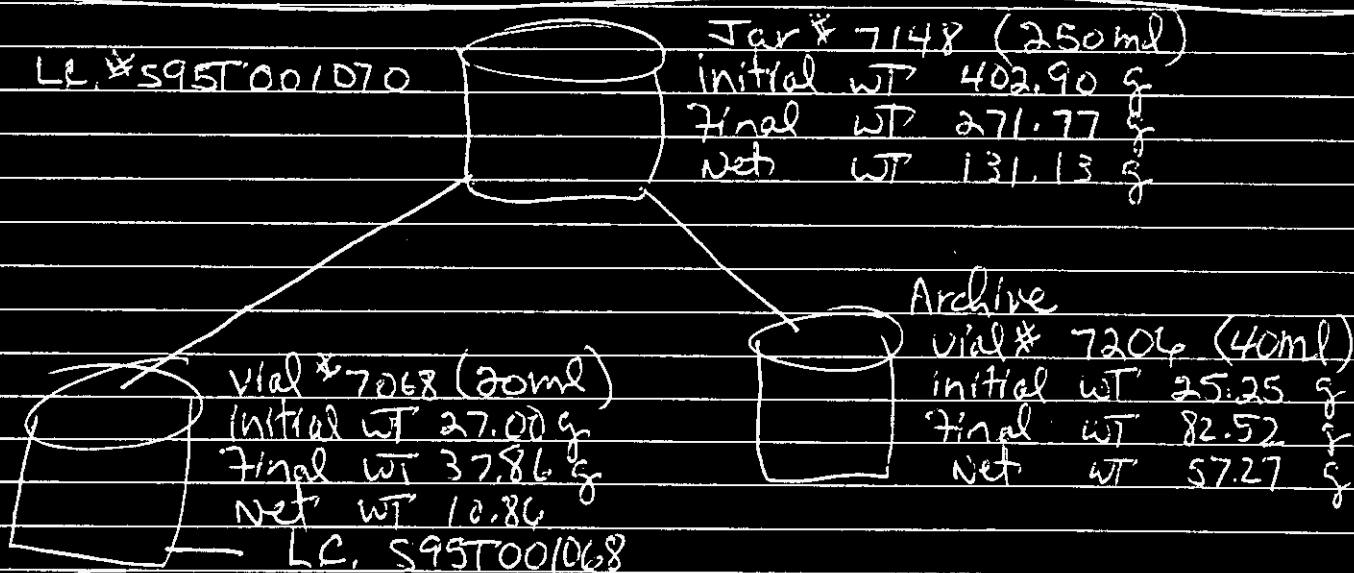 Jar # 7148 (250ml)
L.C. # S95T001070
initial WT 402.90 g
Final WT 271.77 g
Net WT 131.13 g
Archive
vial # 7206 (40ml)
initial WT 25.25 g
Final WT 82.52 g
Net WT 57.27 g
vial # 7068 (20ml)
initial WT 27.00 g
Final WT 37.86 g
Net WT 10.86
L.C. S95T001068